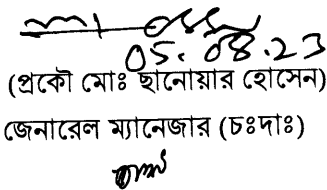 05.08.23
(প্রকৌ মোঃ ছানোয়ার হোসেন)
জেনারেল ম্যানেজার (চঃদাঃ)